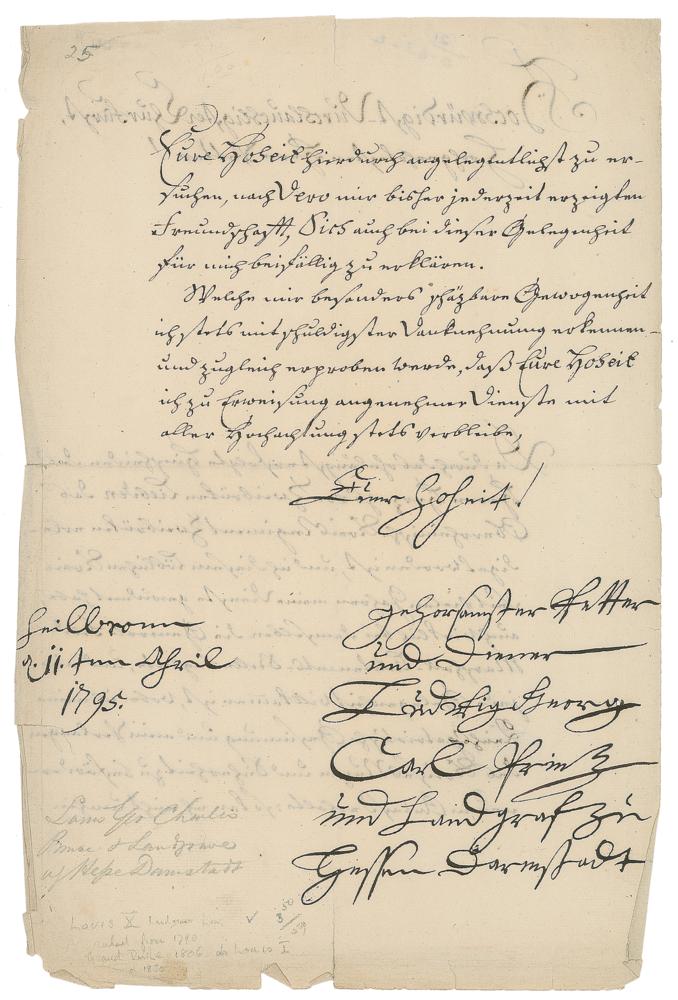 25
Eure Hoheit hierdurch angelegentlichst zu er-
suchen, nach Dero mir bisher jederzeit erzeigten
Freundschafft, Sich auch bei dieser Gelegenheit
für mich beifällig zu erklären.
Welche mir besonders schäzbare Gewogenheit
ich stets mit schuldigster Danknehmung erkennen
und zugleich erproben werde, daß Eure Hoheit
ich zu Erweisung angenehmer Dienste mit
aller Hochachtung stets verbleibe,
Euer Hoheit!
gehorsamster Vetter
und Diener
Ludwig Georg
Carl Printz
und Landgraf zu
Hessen Darmstadt
Heilbronn
d. 11. ten April
1795.
Louis Geo Charles
Prince & Landgrave
of Hesse Darmstadt
Louis X
ruled from 1790
Grand Duke 1806 as Louis I
1830